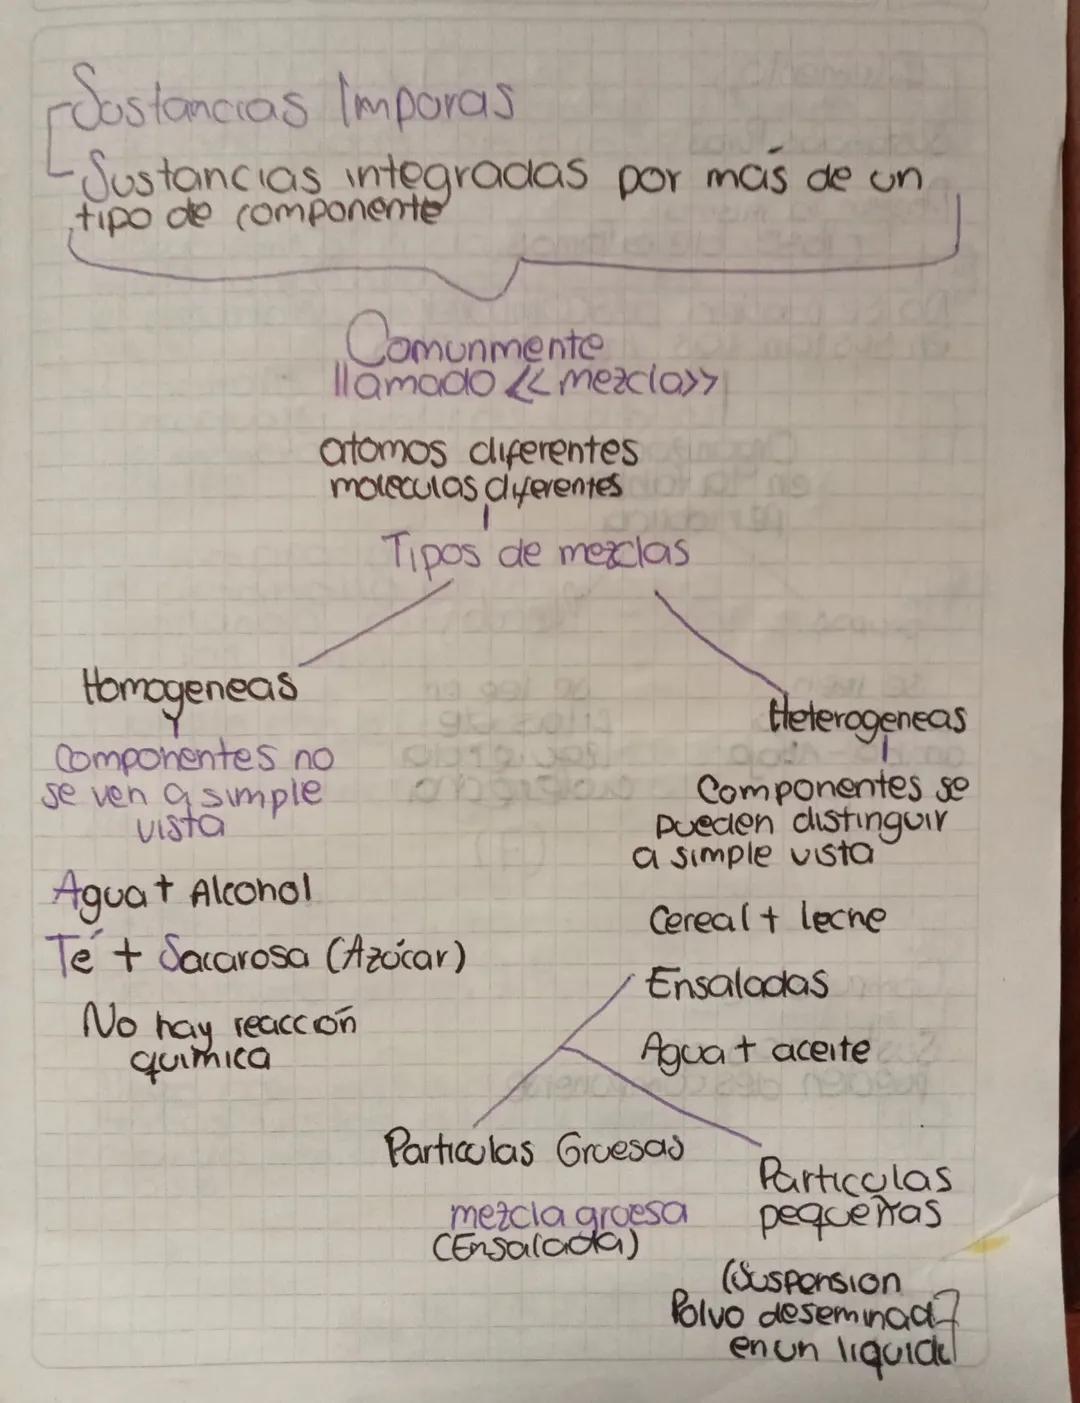 Sustancias Imporas
Sustancias integradas por más de un
tipo de componente
Comunmente
llamado << mezcla>>
atomos diferentes
moleculas diferentes
Tipos de mezclas
Homogeneas
Componentes no
se ven a simple
vista
Agua + Alcohol
Té + Sacarosa (Azúcar)
No hay reacción
quimica
Heterogeneas
Componentes se
pueden distinguir
a simple vista
Cereal + leche
Ensaladas
Agua + aceite
Particulas Gruesas
mezcla gruesa
(Ensalada)
Particulas
pequeñas
(Suspension
Polvo deseminad
en un liquid